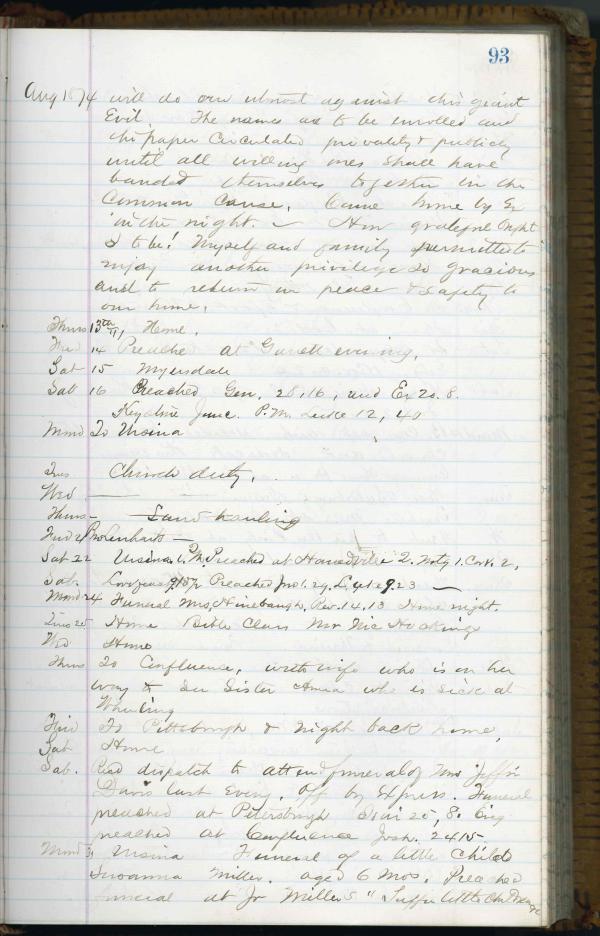 93
Aug 1874 will do our utmost against this giant
Evil. The names are to be enrolled and
this paper Circulated privately & publicly
until all willing ones shall have
banded themselves together in the
Common Cause. Came home by Ex
in the night. — How grateful ought
I to be! Myself and family permitted to
enjoy another privilege so gracious
and to return in peace & safety to
our home.
Thurs 13th Home.
14 Preache at Garrett evening.
Sat 15 Myersdale
Sab 16 Preached Gen. 28,16, and Ex 20. 8.
Keystone Junc. P.M. Luke 12, 40
Mond To Ursina
Tues Church duty.
Wed —
Thurs — Sand hauling
Frid 21 —
Sat 22 Ursina. Preached at 1. Cor. 2,
Sab. Preached Jno 1.29. 23 —
Mond 24 Funeral Mrs, Hinebaugh, Rev. 14,13 Home night.
Tues 25 Home Bible Class Mr Nic Hocking
Wed Home
Thurs To Confluence, with wife who is on her
way to see Sister Anna who is sick at
Wheeling
Frid To Pittsburgh & night back home,
Sat Home
Sab. Recd dispatch to attend funeral of Mrs Jeffn
Davis last Eveng. Off by Express. Funeral
preached at Petersburgh 25, 8. Eveg
preached at Confluence Josh. 24 15
Mond 31 Ursina Funeral of a little Child
Susanna Miller. aged 6 Mos. Preached
funeral at Jr Millers "Suffer little Children &c